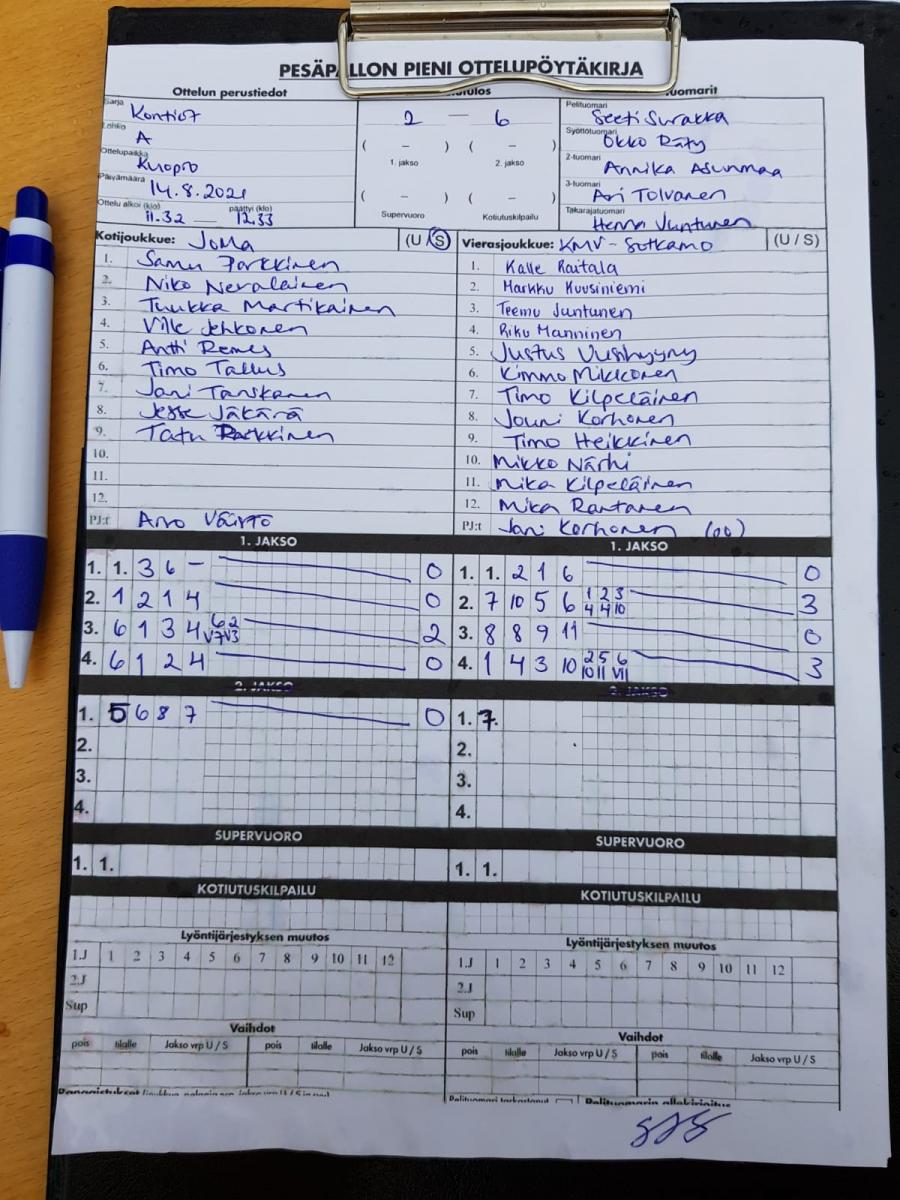 PESÄPALLON PIENI OTTELUPÖYTÄKIRJA
Ottelun perustiedot
Sarja
Kontio7
Lohko
A
Ottelupaikka
Kuopio
Päivämäärä
14.8.2021
Ottelu alkoi (klo) päättyi (klo)
11.32 — 12.33
2 — 6
( – ) ( – )
1. jakso 2. jakso
( – ) ( – )
Supervuoro Kotiutuskilpailu
Pelituomari
Seeti Surakka
Syöttötuomari
Okko Räty
2-tuomari
Annika Asunmaa
3-tuomari
Ari Tolvanen
Takarajatuomari
Henna Juntunen
Kotijoukkue: JoMa (U / S)
1. Samu Parkkinen
2. Niko Nevalainen
3. Tuukka Martikainen
4. Ville Jehkonen
5. Antti Remes
6. Timo Tallus
7. Jani Tanskanen
8. Jesse Jäkärä
9. Tatu Parkkinen
10.
11.
12.
PJ:t Arvo
Vierasjoukkue: KMV - Sotkamo (U / S)
1. Kalle Raitala
2. Markku Kuusiniemi
3. Teemu Juntunen
4. Riku Manninen
5. Justus
6. Kimmo Mikkonen
7. Timo Kilpeläinen
8. Jouni Korhonen
9. Timo Heikkinen
10. Mikko Närhi
11. Mika Kilpeläinen
12. Mika Rantanen
PJ:t Jani Korhonen (00)
1. JAKSO
1. 1. 3 6 – 0
2. 1 2 1 4 0
3. 6 1 3 4 6 2 V7 V3 2
4. 6 1 2 4 0
1. JAKSO
1. 1. 2 1 6 0
2. 7 10 5 6 1 2 3 4 4 10 3
3. 8 8 9 11 0
4. 1 4 3 10 2 5 6 10 11 VII 3
2. JAKSO
1. 5 6 8 7 0
2.
3.
4.
2. JAKSO
1. 7.
2.
3.
4.
SUPERVUORO
1. 1.
SUPERVUORO
1. 1.
KOTIUTUSKILPAILU
KOTIUTUSKILPAILU
Lyöntijärjestyksen muutos
1.J 1 2 3 4 5 6 7 8 9 10 11 12
2.J
Sup
Lyöntijärjestyksen muutos
1.J 1 2 3 4 5 6 7 8 9 10 11 12
2.J
Sup
Vaihdot
pois tilalle Jakso vrp U / S pois tilalle Jakso vrp U / S
Vaihdot
pois tilalle Jakso vrp U / S pois tilalle Jakso vrp U / S